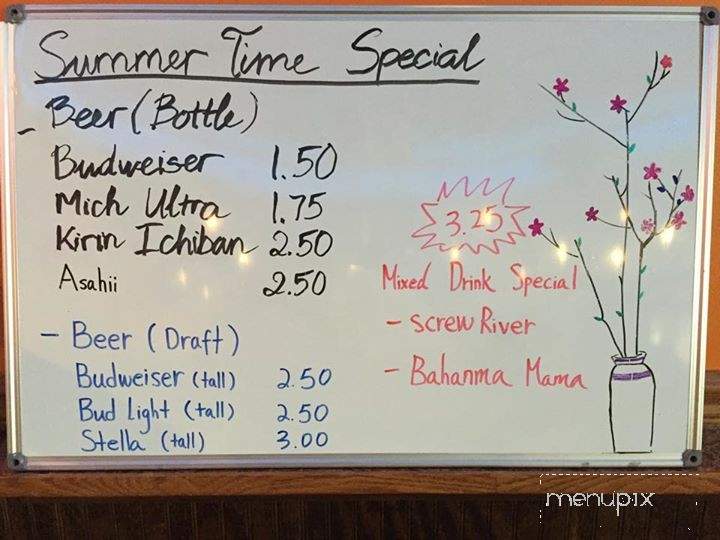 Summer Time Special
- Beer (Bottle)
Budweiser 1.50
Mich Ultra 1.75
Kirin Ichiban 2.50
Asahii 2.50
- Beer (Draft)
Budweiser (tall) 2.50
Bud Light (tall) 2.50
Stella (tall) 3.00
3.25
Mixed Drink Special
- screw River
- Bahanma Mama
menupix